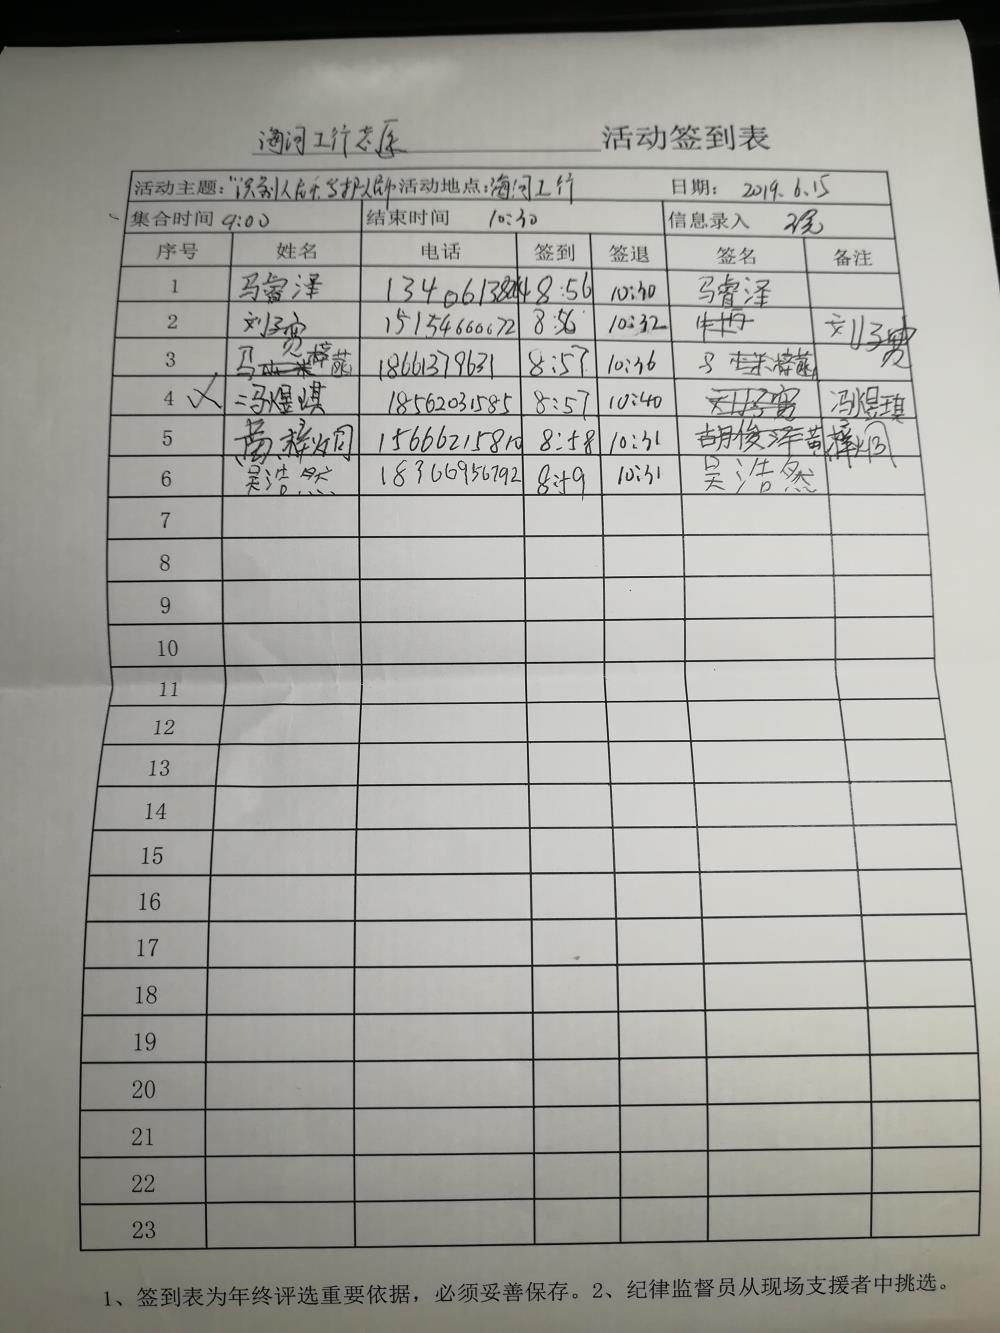 海河工行志愿 活动签到表
活动主题： 活动地点：海河工行 日期： 2019.6.15
集合时间 9:00 结束时间 10:30 信息录入
序号 姓名 电话 签到 签退 签名 备注
1 马睿泽 8:56 10:30 马睿泽
2 刘子宽 15154660672 8:56 10:32 刘子宽
3 马 梓菡 18661379631 8:57 10:36 马 梓菡
4 冯煜琪 18562031585 8:57 10:40 刘子宽 冯煜琪
5 黄梓炯 8:58 10:31 胡俊泽 黄梓炯
6 吴浩然 18366956792 8:59 10:31 吴浩然
7
8
9
10
11
12
13
14
15
16
17
18
19
20
21
22
23
1、签到表为年终评选重要依据，必须妥善保存。2、纪律监督员从现场支援者中挑选。